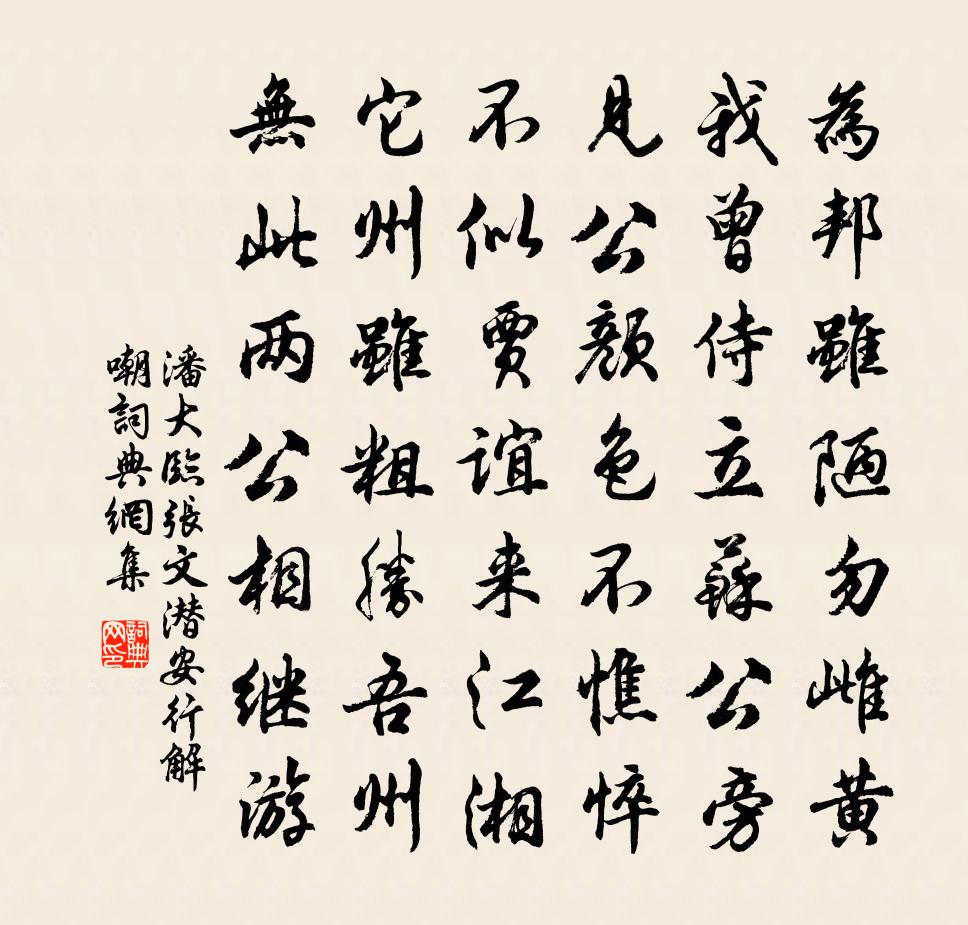 為邦雖陋勿雌黃
我曾侍立蘇公旁
見公顏色不憔悴
不似賈誼来江湘
它州雖粗勝吾州
無此两公相継游
潘大臨張文潜安行解
嘲詞典網集
詞典网印